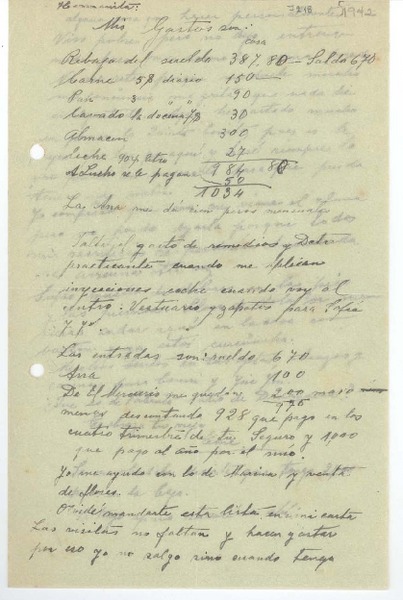 Hermanita:
7218 1942
Mis Gastos son:
casa
Rebaja del sueldo 387.80 Saldo 670
Carne 5,8 diario 150
Pan 3 " " 90
Lavado la docena 7,3 30
Almacen 300
Leche 90 litro 27
984 80
A Lucho se le paga 50
1034
La Ana me da cien pesos mensuales
Falta el gasto de remedios y Doctor
practicante cuando me aplican
inyecciones coche cuando voy al
centro. Vestuario y zapatos para Sofía
y yo
Las entradas son: sueldo 670
Ana 100
De El Mercurio me quedan 200 mas o
menos descontando 928 que pago en los
cuatro trimestres de tu Seguro y 1,000
que pago al año por el mío.
Yo me ayudo con lo de Marina y venta
de flores.
Olvidé mandarte esta lista en mi carta
Las visitas no faltan y hacen gastar
por eso yo no salgo sino cuando tengo